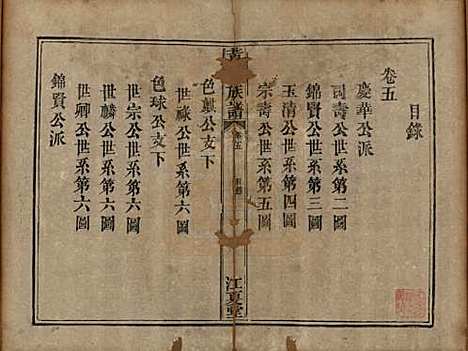 目錄
卷五
慶華公派
司壽公世系第二圖
錦賢公世系第三圖
玉清公世系第四圖
宗壽公世系第五圖
族譜
卷五
目錄
江夏堂
色
公支下
世祿公世系第六圖
色球公支下
世宗公世系第六圖
世麟公世系第六圖
世卿公世系第六圖
錦賢公派